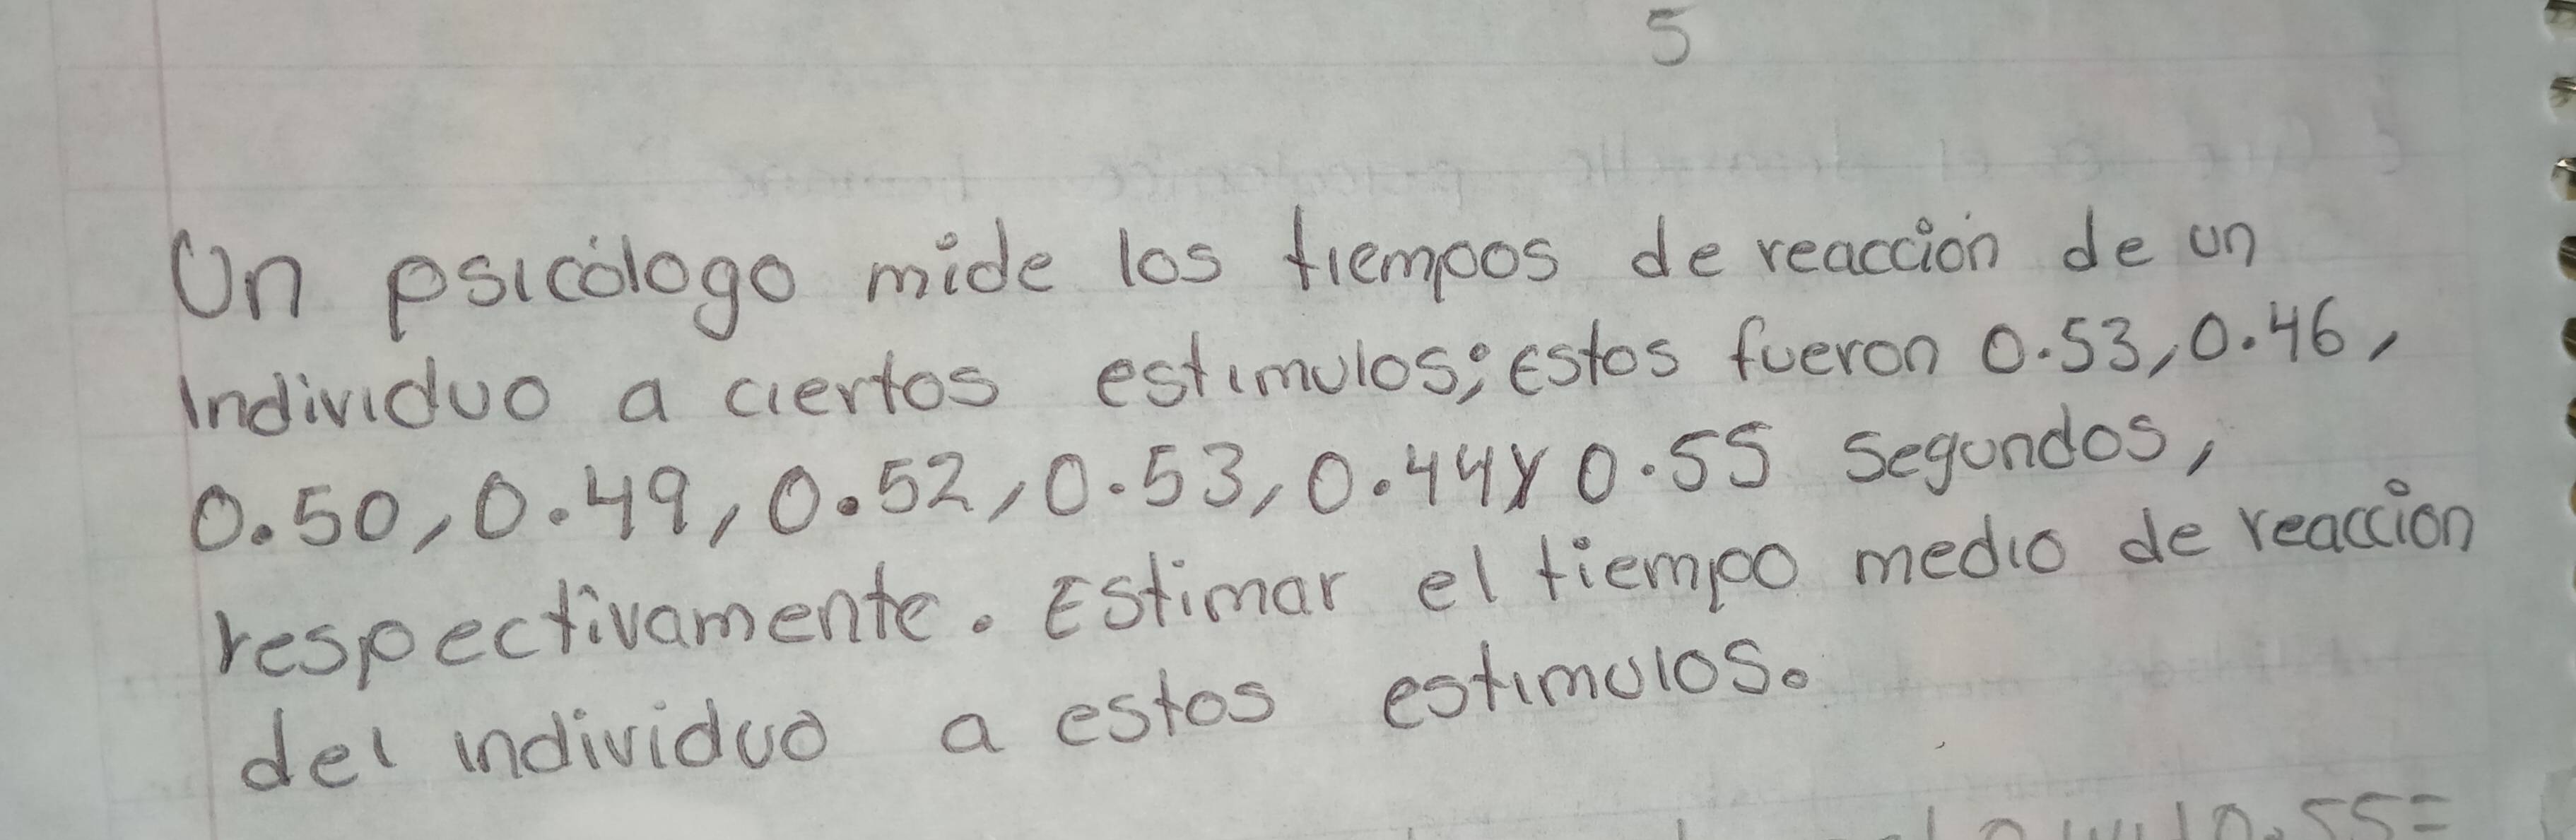 5
Un psicólogo mide los tiempos de reacción de un
individuo a ciertos estimulos; Estos fueron 0.53, 0.46,
0.50, 0.49, 0.52, 0.53, 0.44 y 0.55 segundos,
respectivamente. Estimar el tiempo medio de reaccion
del individuo a estos estimulos.
0.55=